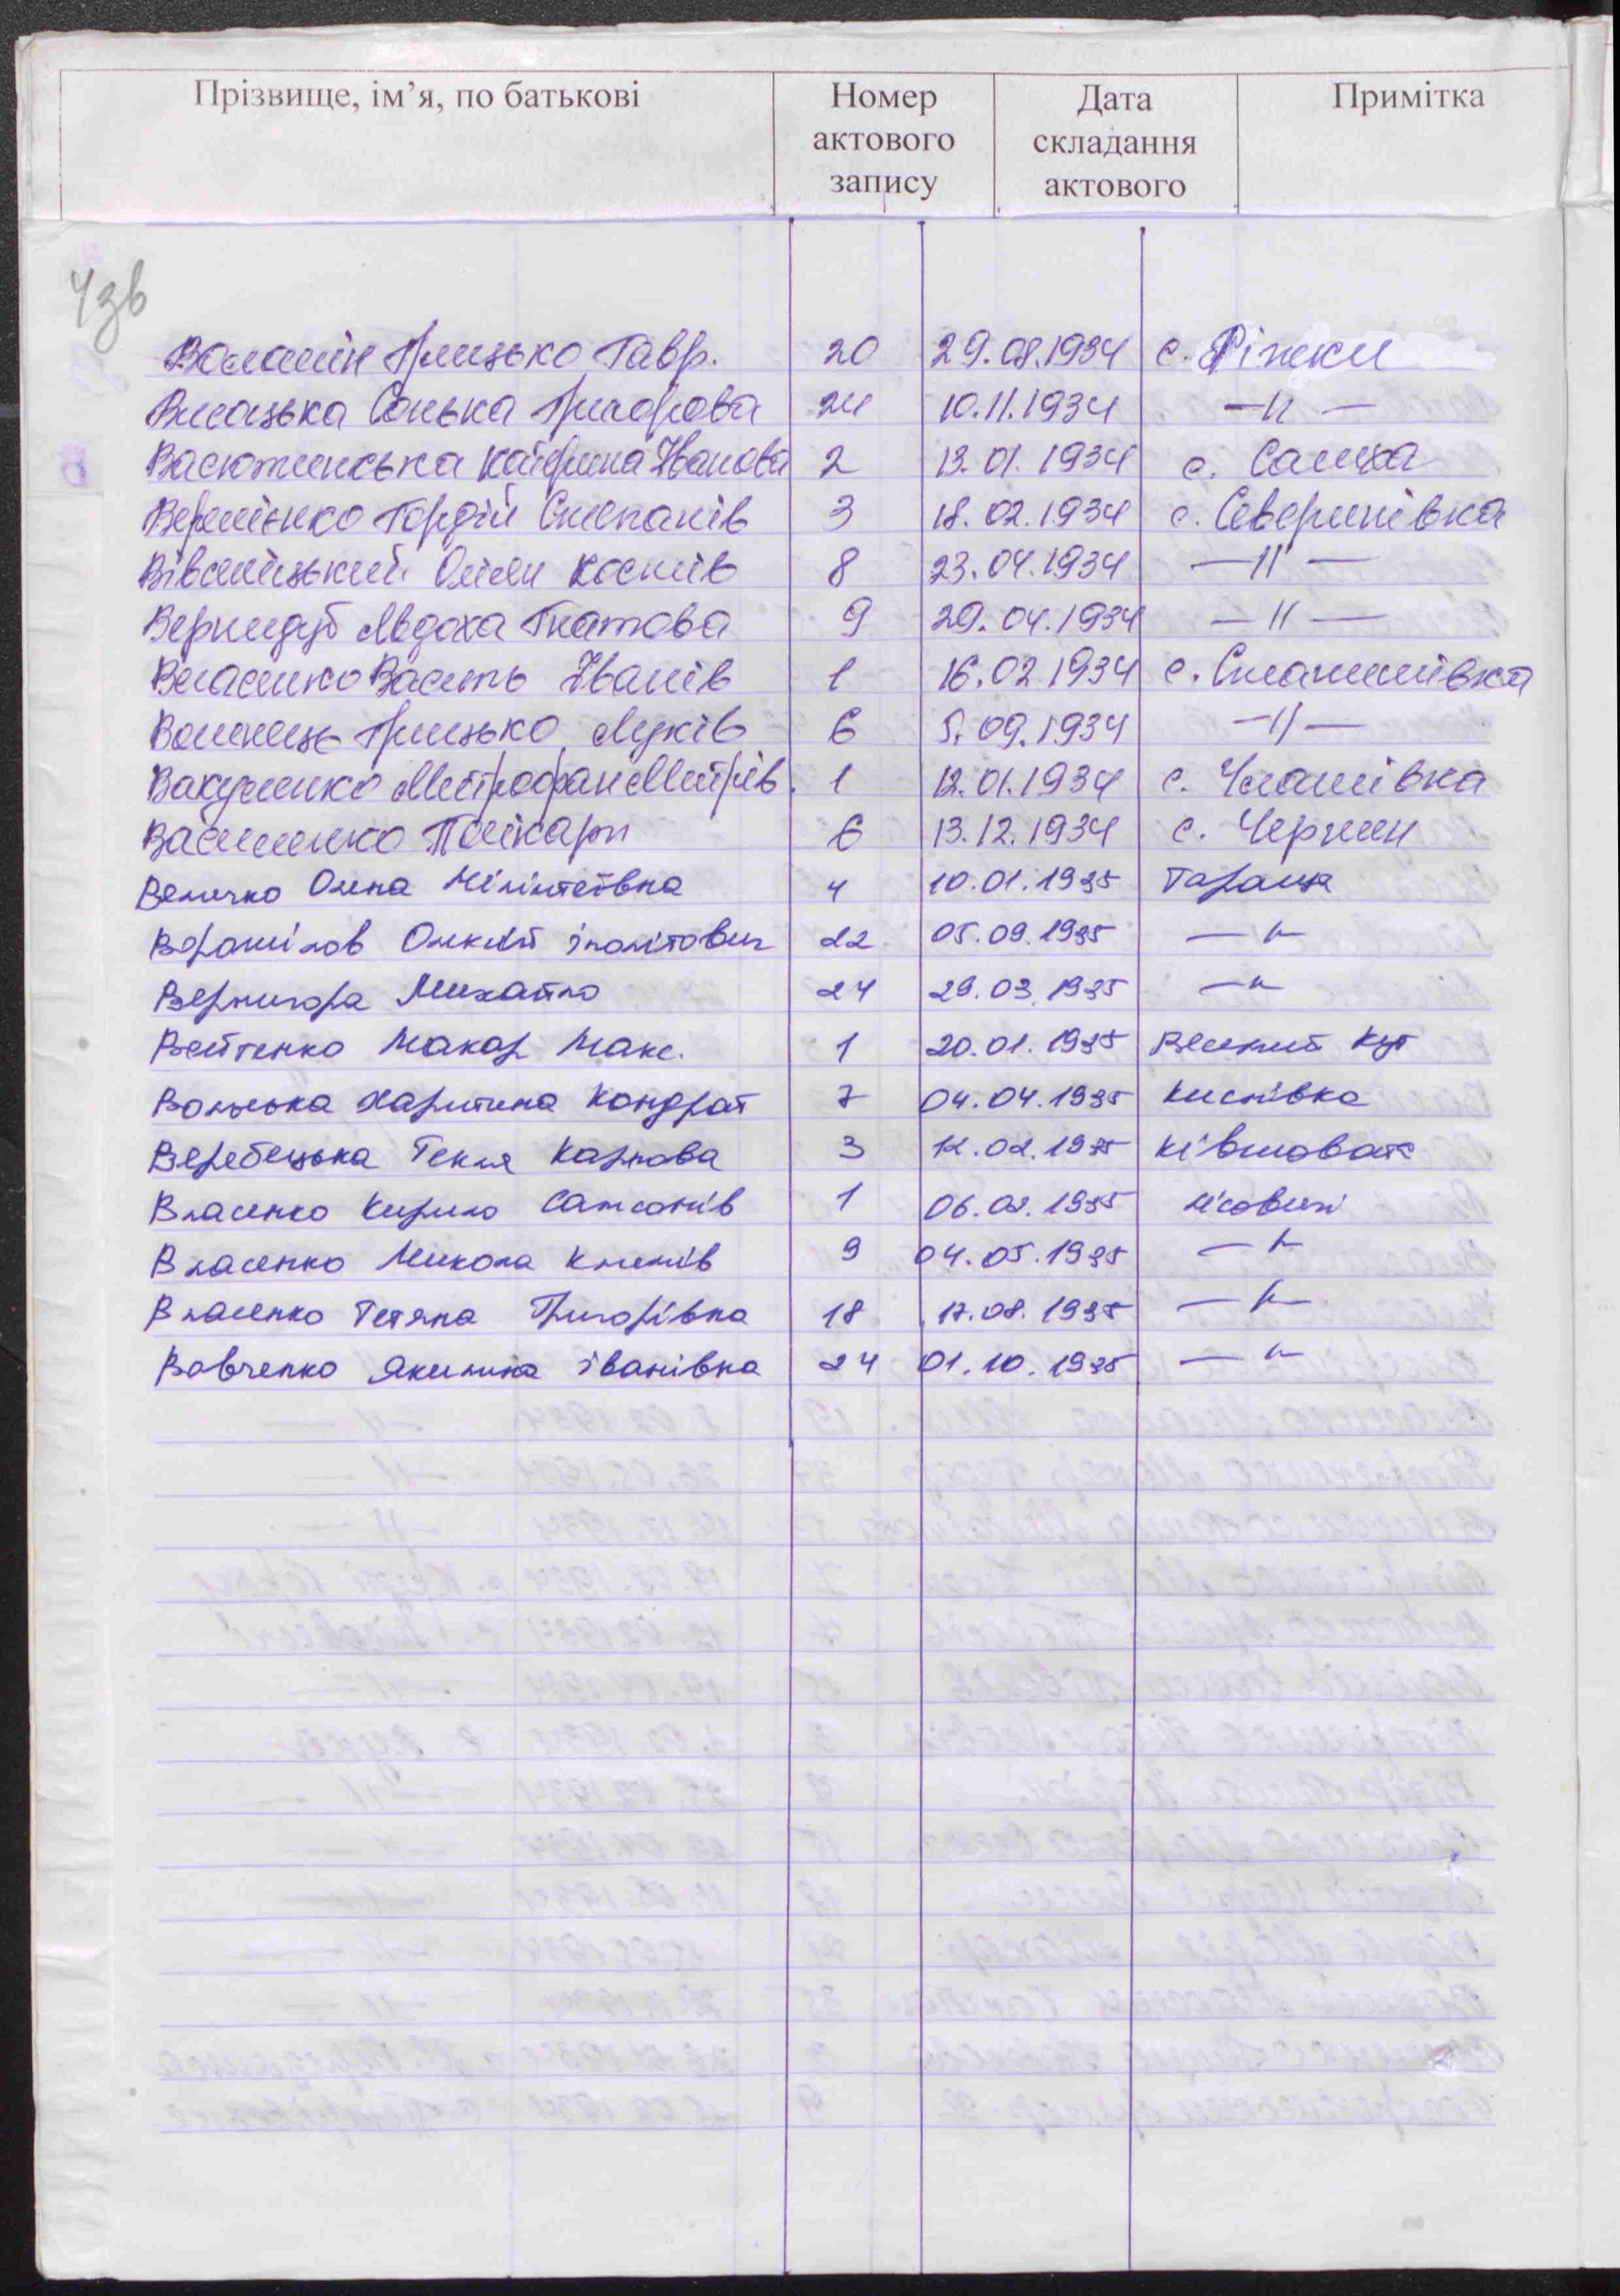 Прізвище, ім’я, по батькові Номер актового запису Дата складання актового Примітка
43в
Волошин Грицько Гавр. 20 29.08.1934 с. Ріжки
Висоцька Солька Григорова 24 10.11.1934 —//—
Васютинська Катерина Іванова 2 13.01.1934 с. Салиха
Вермієнко Гордій Степанів 3 18.02.1934 с. Северинівка
Вівсяницький Костів 8 23.04.1934 —//—
Вернидуб Мвдоха Гнатова 9 29.04.1934 —//—
Власенко Василь Іванів 1 16.02.1934 с. Станишівка
Волинець Грицько Луків 6 5.09.1934 —//—
Вакуленко Митрофан Митрів. 1 12.01.1934 с. Улашівка
Василенко Полікарп 6 13.12.1934 с. Чернин
Величко Олена 4 10.01.1935 Тараща
Верошілов іполітович 22 05.09.1935 —//—
Вернигора Михайло 24 29.03.1935 —//—
Войтенко Макар Макс. 1 20.01.1935 Веселий Кут
Вольська Харитина Кондрат 7 04.04.1935 Кислівка
Веребецька Текля Карпова 3 12.02.1935 Ківшовата
Власенко Кирило Самсонів 1 06.03.1935 Лісовичі
Власенко Микола Климів 9 04.05.1935 —//—
Власенко Тетяна Григорівна 18 17.08.1935 —//—
Вовченко Якилина іванівна 24 01.10.1935 —//—